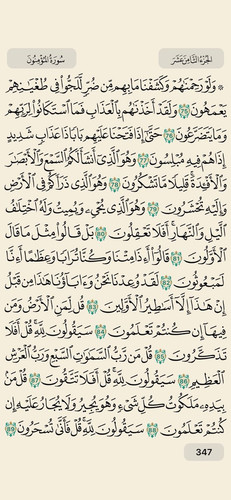 سُورَةُ المُؤْمِنُونَ
الجُزْءُ الثَّامِنَ عَشَرَ
۞ وَلَوْ رَحِمْنَٰهُمْ وَكَشَفْنَا مَا بِهِم مِّن ضُرٍّ لَّلَجُّوا۟ فِى طُغْيَٰنِهِمْ
يَعْمَهُونَ 75 وَلَقَدْ أَخَذْنَٰهُم بِٱلْعَذَابِ فَمَا ٱسْتَكَانُوا۟ لِرَبِّهِمْ
وَمَا يَتَضَرَّعُونَ 76 حَتَّىٰٓ إِذَا فَتَحْنَا عَلَيْهِم بَابًا ذَا عَذَابٍ شَدِيدٍ
إِذَا هُمْ فِيهِ مُبْلِسُونَ 77 وَهُوَ ٱلَّذِىٓ أَنشَأَ لَكُمُ ٱلسَّمْعَ وَٱلْأَبْصَٰرَ
وَٱلْأَفْـِٔدَةَ قَلِيلًا مَّا تَشْكُرُونَ 78 وَهُوَ ٱلَّذِى ذَرَأَكُمْ فِى ٱلْأَرْضِ
وَإِلَيْهِ تُحْشَرُونَ 79 وَهُوَ ٱلَّذِى يُحْىِۦ وَيُمِيتُ وَلَهُ ٱخْتِلَٰفُ
ٱلَّيْلِ وَٱلنَّهَارِ أَفَلَا تَعْقِلُونَ 80 بَلْ قَالُوا۟ مِثْلَ مَا قَالَ
ٱلْأَوَّلُونَ 81 قَالُوٓا۟ أَءِذَا مِتْنَا وَكُنَّا تُرَابًا وَعِظَٰمًا أَءِنَّا
لَمَبْعُوثُونَ 82 لَقَدْ وُعِدْنَا نَحْنُ وَءَابَآؤُنَا هَٰذَا مِن قَبْلُ
إِنْ هَٰذَآ إِلَّآ أَسَٰطِيرُ ٱلْأَوَّلِينَ 83 قُل لِّمَنِ ٱلْأَرْضُ وَمَن
فِيهَآ إِن كُنتُمْ تَعْلَمُونَ 84 سَيَقُولُونَ لِلَّهِ قُلْ أَفَلَا
تَذَكَّرُونَ 85 قُلْ مَن رَّبُّ ٱلسَّمَٰوَٰتِ ٱلسَّبْعِ وَرَبُّ ٱلْعَرْشِ
ٱلْعَظِيمِ 86 سَيَقُولُونَ لِلَّهِ قُلْ أَفَلَا تَتَّقُونَ 87 قُلْ مَنۢ
بِيَدِهِۦ مَلَكُوتُ كُلِّ شَىْءٍ وَهُوَ يُجِيرُ وَلَا يُجَارُ عَلَيْهِ إِن
كُنتُمْ تَعْلَمُونَ 88 سَيَقُولُونَ لِلَّهِ قُلْ فَأَنَّىٰ تُسْحَرُونَ 89
347